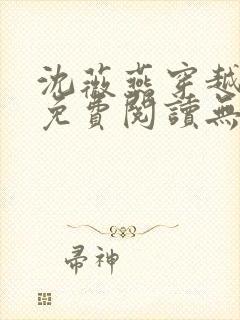 沈薇燕穿越
免費閱讀無
帚神